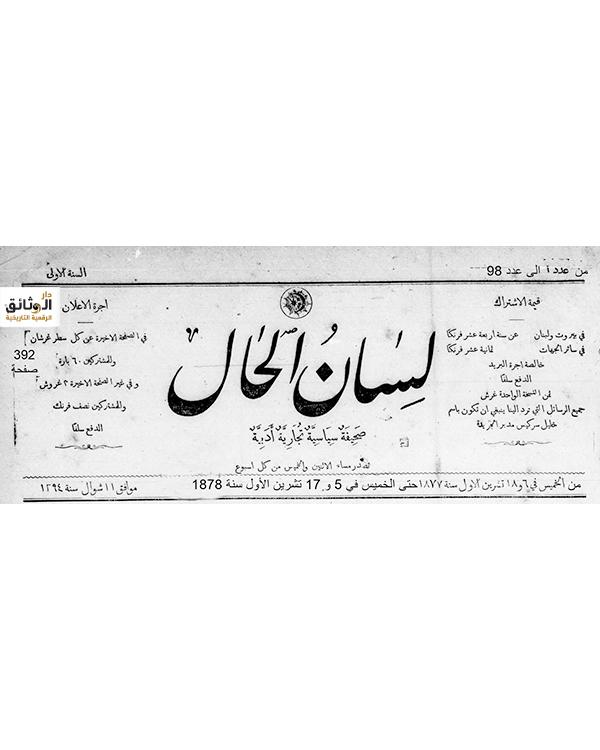 من عدد ١ الى عدد 98
السنة الاولى
دار
الوثائق
الرقمية التاريخية
392
صفحة
قيمة الاشتراك
في بيروت ولبنان عن سنة اربعة عشر فرنكًا
في سائر الجهات ثمانية عشر فرنكًا
خالصة اجرة البريد
الدفع سلفًا
ثمن النسخة الواحدة غرش
جميع الرسائل التي ترد الينا ينبغي ان تكون باسم
خليل سركيس مدير الجريدة
لسان الحال
صحيفة سياسية تجارية ادبية
تصدر مساء الاثنين والخميس من كل اسبوع
اجرة الاعلان
في الصفحة الاخيرة عن كل سطر غرشان
والمشتركين ٦٠ بارة
و في غير الصفحة الاخيرة ٣ غروش
والمشتركين نصف فرنك
الدفع سلفًا
من الخميس في ٦ و ١٨ تشرين الاول سنة ١٨٧٧ حتى الخميس في 5 و 17 تشرين الأول سنة 1878
موافق ١١ شوال سنة ١٢٩٤